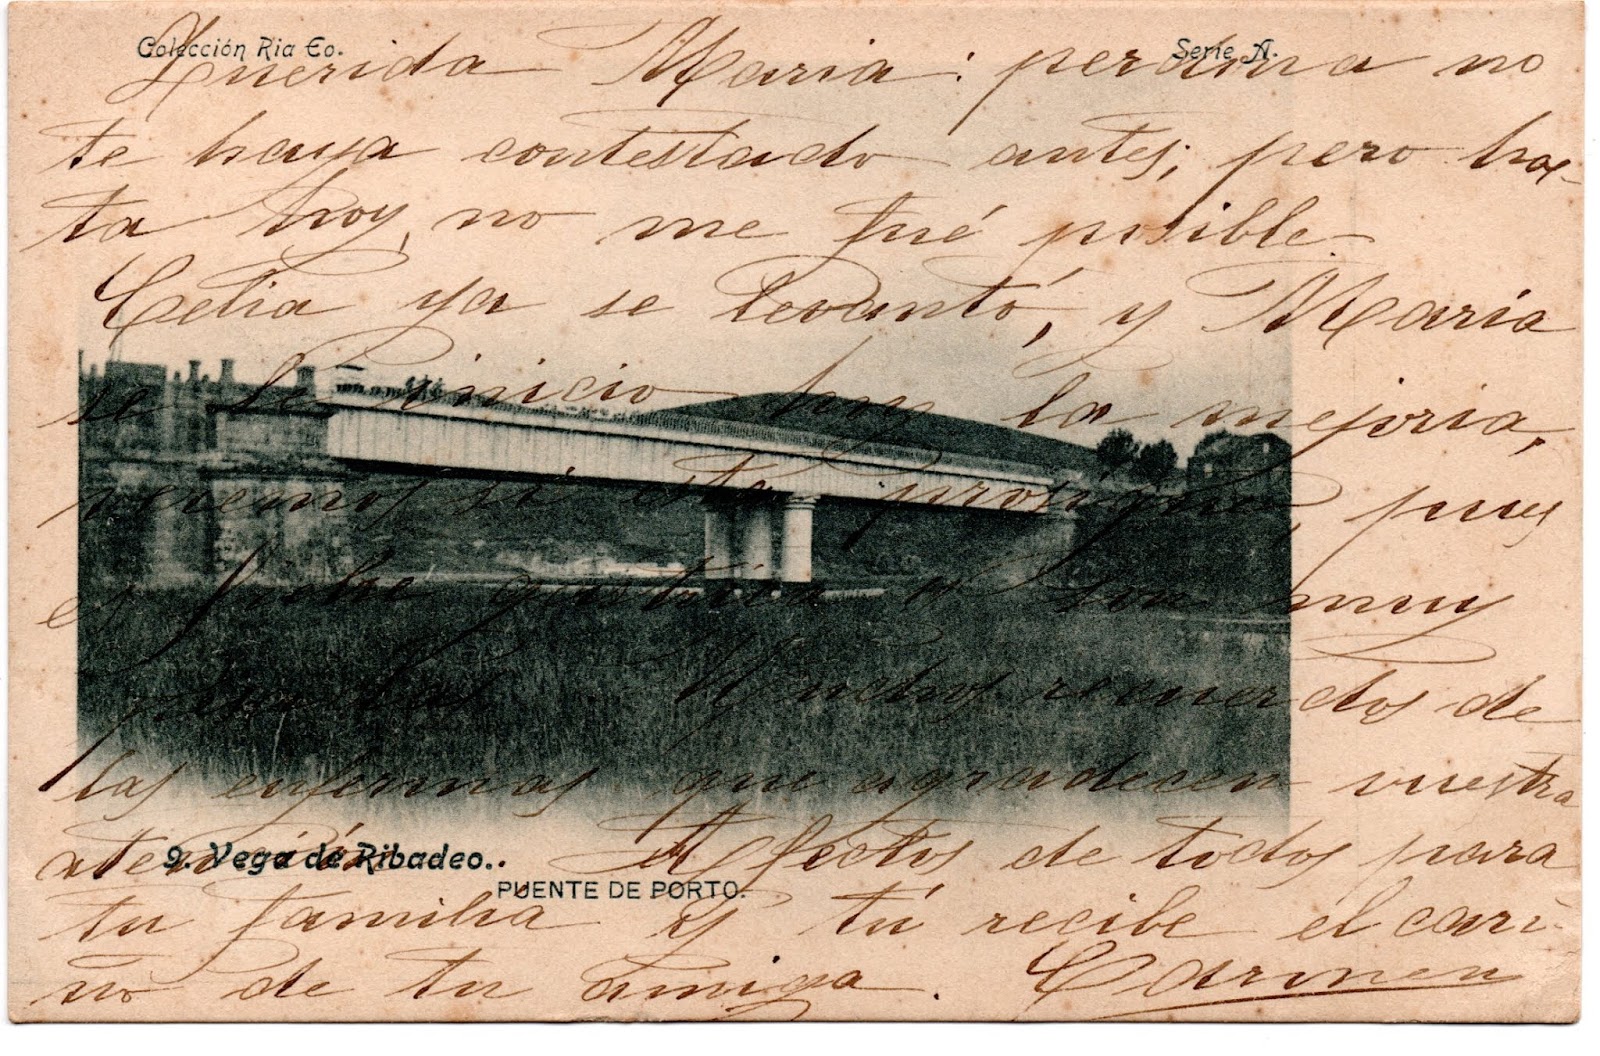 Colección Ria Eo.
Serie A.
Querida Maria: perdona no
te haya contestado antes, pero has-
ta hoy, no me fué posible
Celia ya se levantó, y Maria
se le inicio hoy la mejoria,
veremos si esta prosigue, pues
el fiebre gastrica o son muy
pesadas Muchos recuerdos de
las enfermas que agradecen vuestra
atención Afectos de todos para
tu familia y tú recibe el cari-
ño de tu amiga. Carmen
9. Vega de Ribadeo..
PUENTE DE PORTO.